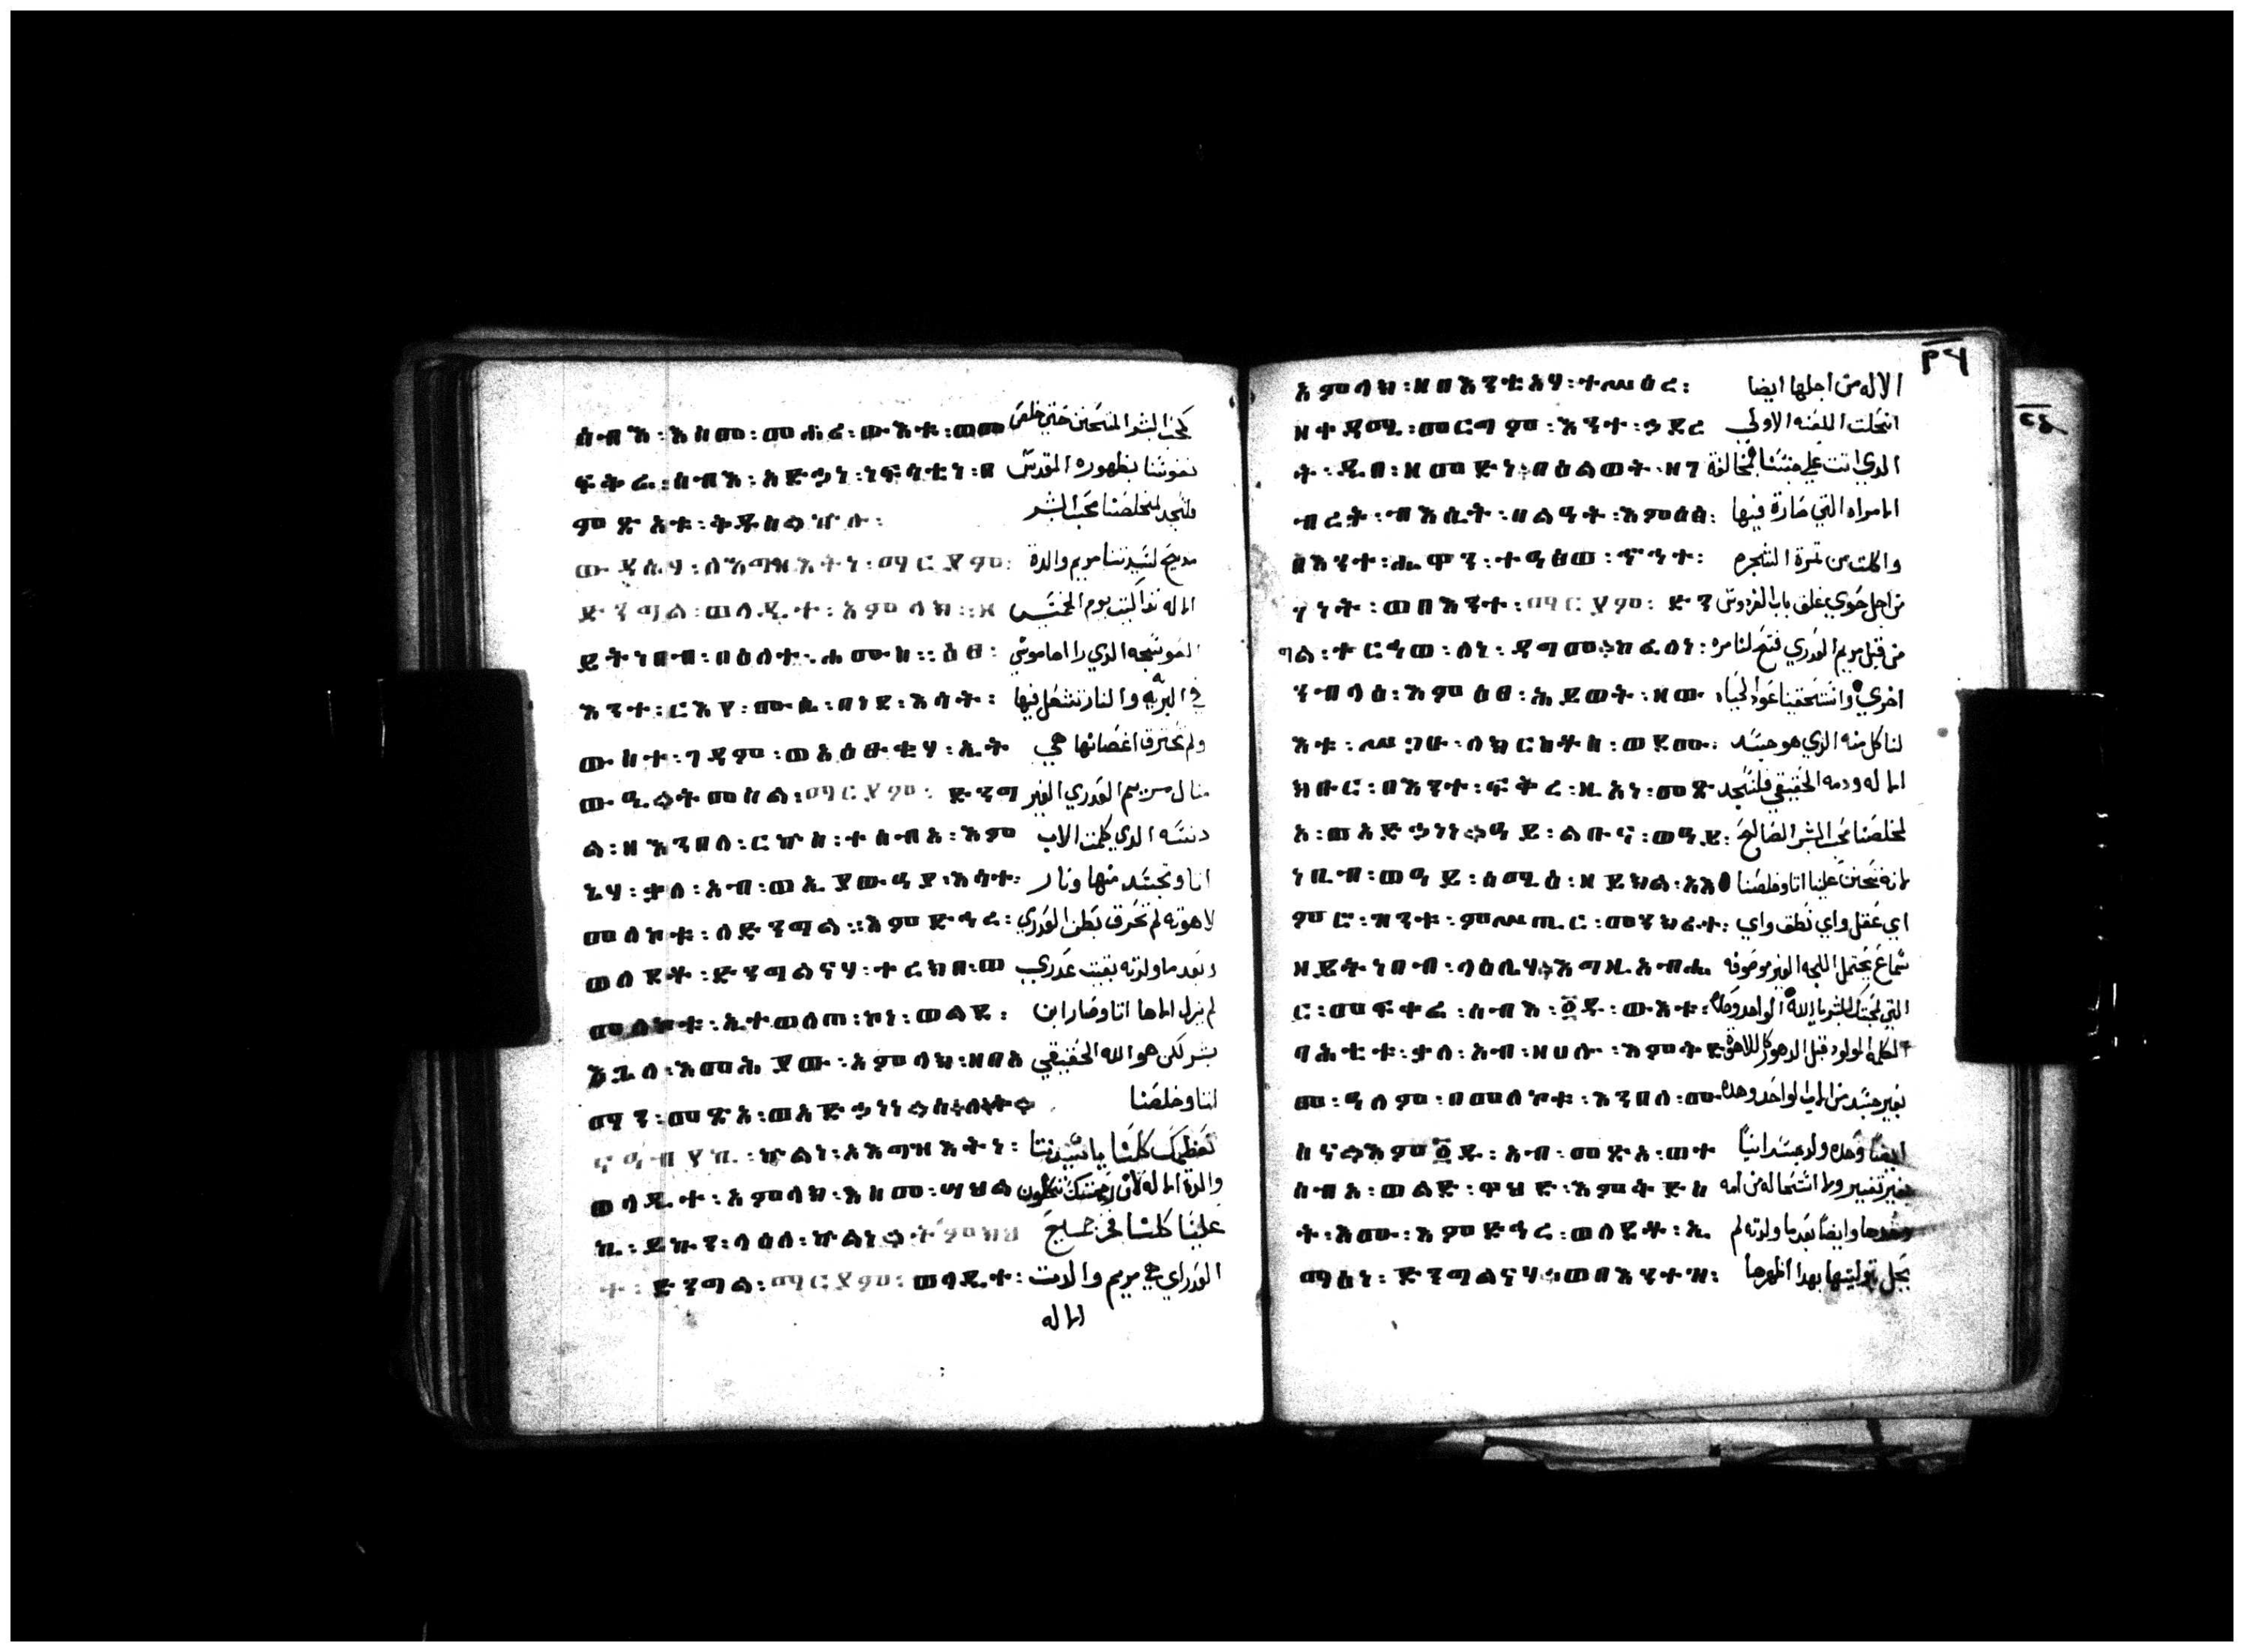 ሰብእ፡እስመ፡መሐሪ፡ውእቱ፡ወመ كمحب البشر المتحنن حتى خلص
ፍቀሬ፡ሰብእ፡አድኃነ፡ነፍሳቲነ፡በ نفوسنا بظهوره المقدس
ምጽአቱ፡ቅዱስ። فلنمجد لمخلصنا محب البشر
ውዳሴሃ፡ለእግዝእትነ፡ማርያም፡ مديح لسيدتنا مريم والدة
ድንግል፡ወላዲተ፡አምላክ፡፡ዘ الاله تداكيت يوم الخميس
ይትነበብ፡በዕለተ፡ሐሙስ፡፡ዕፀ፡ العوسجه الذي راها موسى
እንተ፡ርእየ፡ሙሴ፡በነደ፡እሳት፡ في البريه والنار تشعل فيها
ውስተ፡ገዳም፡ወአዕፁቂሃ፡ኢት ولم تحترق اغصانها هي
ውዒ፡ትመስል፡ማርያም፡ ድንግ مثال مريم العدري الغير
ል፡ዘእንበለ፡ርኩስ፡ተሰብአ፡እም دنسه الذي كلمت الاب
ኔሃ፡ቃለ፡አብ፡ወኢያውዓያ፡እሳተ፡ اتا وتجسد منها ونار
መለኮቱ፡ለድንግል፡፡እምድኅረ፡ لاهوته لم تحرق بطن العدري
ወለደቶ፡ድንግልናሃ፡ተረክበ፡ወ وبعد ما ولدته بقيت عدري
መለኮቱ፡ኢተወለጠ፡ኮነ፡ወልደ፡ لم يزل الاها اتا وصار ابن
እጓለ፡እመሕያው፡አምላክ፡ዘበአ بشر لكن هو الله الحقيقي
ማን፡መጽአ፡ወአድኃነነ። لنا وخلصنا
ናዓብየኪ፡ኵልነ፡ኦእግዝእትነ፡ نعظمك كلنا يا سيدتنا
ወላዲተ፡አምላክ፡እስመ፡ሣህል والدة الاله لان رحمتك تكون
ኪ፡ይኩን፡ላዕለ፡ኵልነ። ትምክህ علينا كلنا فخر جميع
ተ፡ ድንግል፡ማርያም፡ ወላዲተ፡ العدراي هي مريم والدت
الاله
አምላክ፡ዘበእንቲአሃ፡ተሠዕረ፡ الاله من اجلها ايضا
ዘተዳሚ፡መርገም፡እንተ፡ኃደረ انحلت اللعنه الاولى
ት፡ዲበ፡ዘመድነ፡በዕልወት፡ዘገ الدي اتت على جنسنا بمخالفة
ብረት፡ብእሲት፡በልዓት፡እምዕፅ፡ الامراه التي صارة فيها
በእንተ፡ሔዋን፡ተዓፀወ፡ኆኅተ፡ واكلت من تمرة الشجره
ገነት፡ወበእንተ፡ማርያም፡ ድን من اجل حوي غلق باب الفردوس
ግል፡ተርኅወ፡ለነ፡ዳግመ። ከፈለነ፡ من قبل مريم العدري فتح لنا مره
ንብላዕ፡እምዕፀ፡ሕይወት፡ዘው اخري واستحقينا عود الحياه
እቱ፡ሥጋሁ፡ለክርስቶስ፡ወደሙ፡ لناكل منه الذي هو جسد
ክቡር፡በእንተ፡ፍቅረ፡ዚአነ፡መጽ الاله ودمه الحقيقي فلنمجد
አ፡ወአድኃነነ። ዓይ፡ልቡና፡ወዓይ፡ لمخلصنا محب البشر الصالح
ነቢብ፡ወዓይ፡ሰሚዕ፡ዘይክል፡አእ لانه تحنن علينا اتا وخلصنا
ምሮ፡ዝንቱ፡ምሥጢር፡መንክረ፡ اي عقل واي نطق واي
ዘይትነበብ፡ላዕሌሃ። እግዚአብሔ سماع يحتمل اللجه الغير موصوفه
ር፡መፍቀሬ፡ሰብእ፡፩ዱ፡ውእቱ፡ التي لمحبتك للبشر يا الله الواحد وحده
ባሕቲቱ፡ቃለ፡አብ፡ዘሀሎ፡እምቅድ الكلمه المولود قبل الدهور كل اللاهوت
መ፡ዓለም፡በመለኮቱ፡እንበለ፡ሙ بغير جسد من الاب الواحد وحده
ስና። እም፩ዱ፡አብ፡መጽአ፡ወተ ايضا وحده ولد جسدانيا
ሰብአ፡ወልድ፡ዋህድ፡እምቅድስ بغير تغيير ولا استحاله من امه
ት፡እሙ፡እምድኅረ፡ወለደቶ፡ኢ وحدها وايضا بعد ما ولدته لم
ማሰነ፡ድንግልናሃ፡ወበእንተዝ፡ يحل بتوليتها بهدا اظهرها